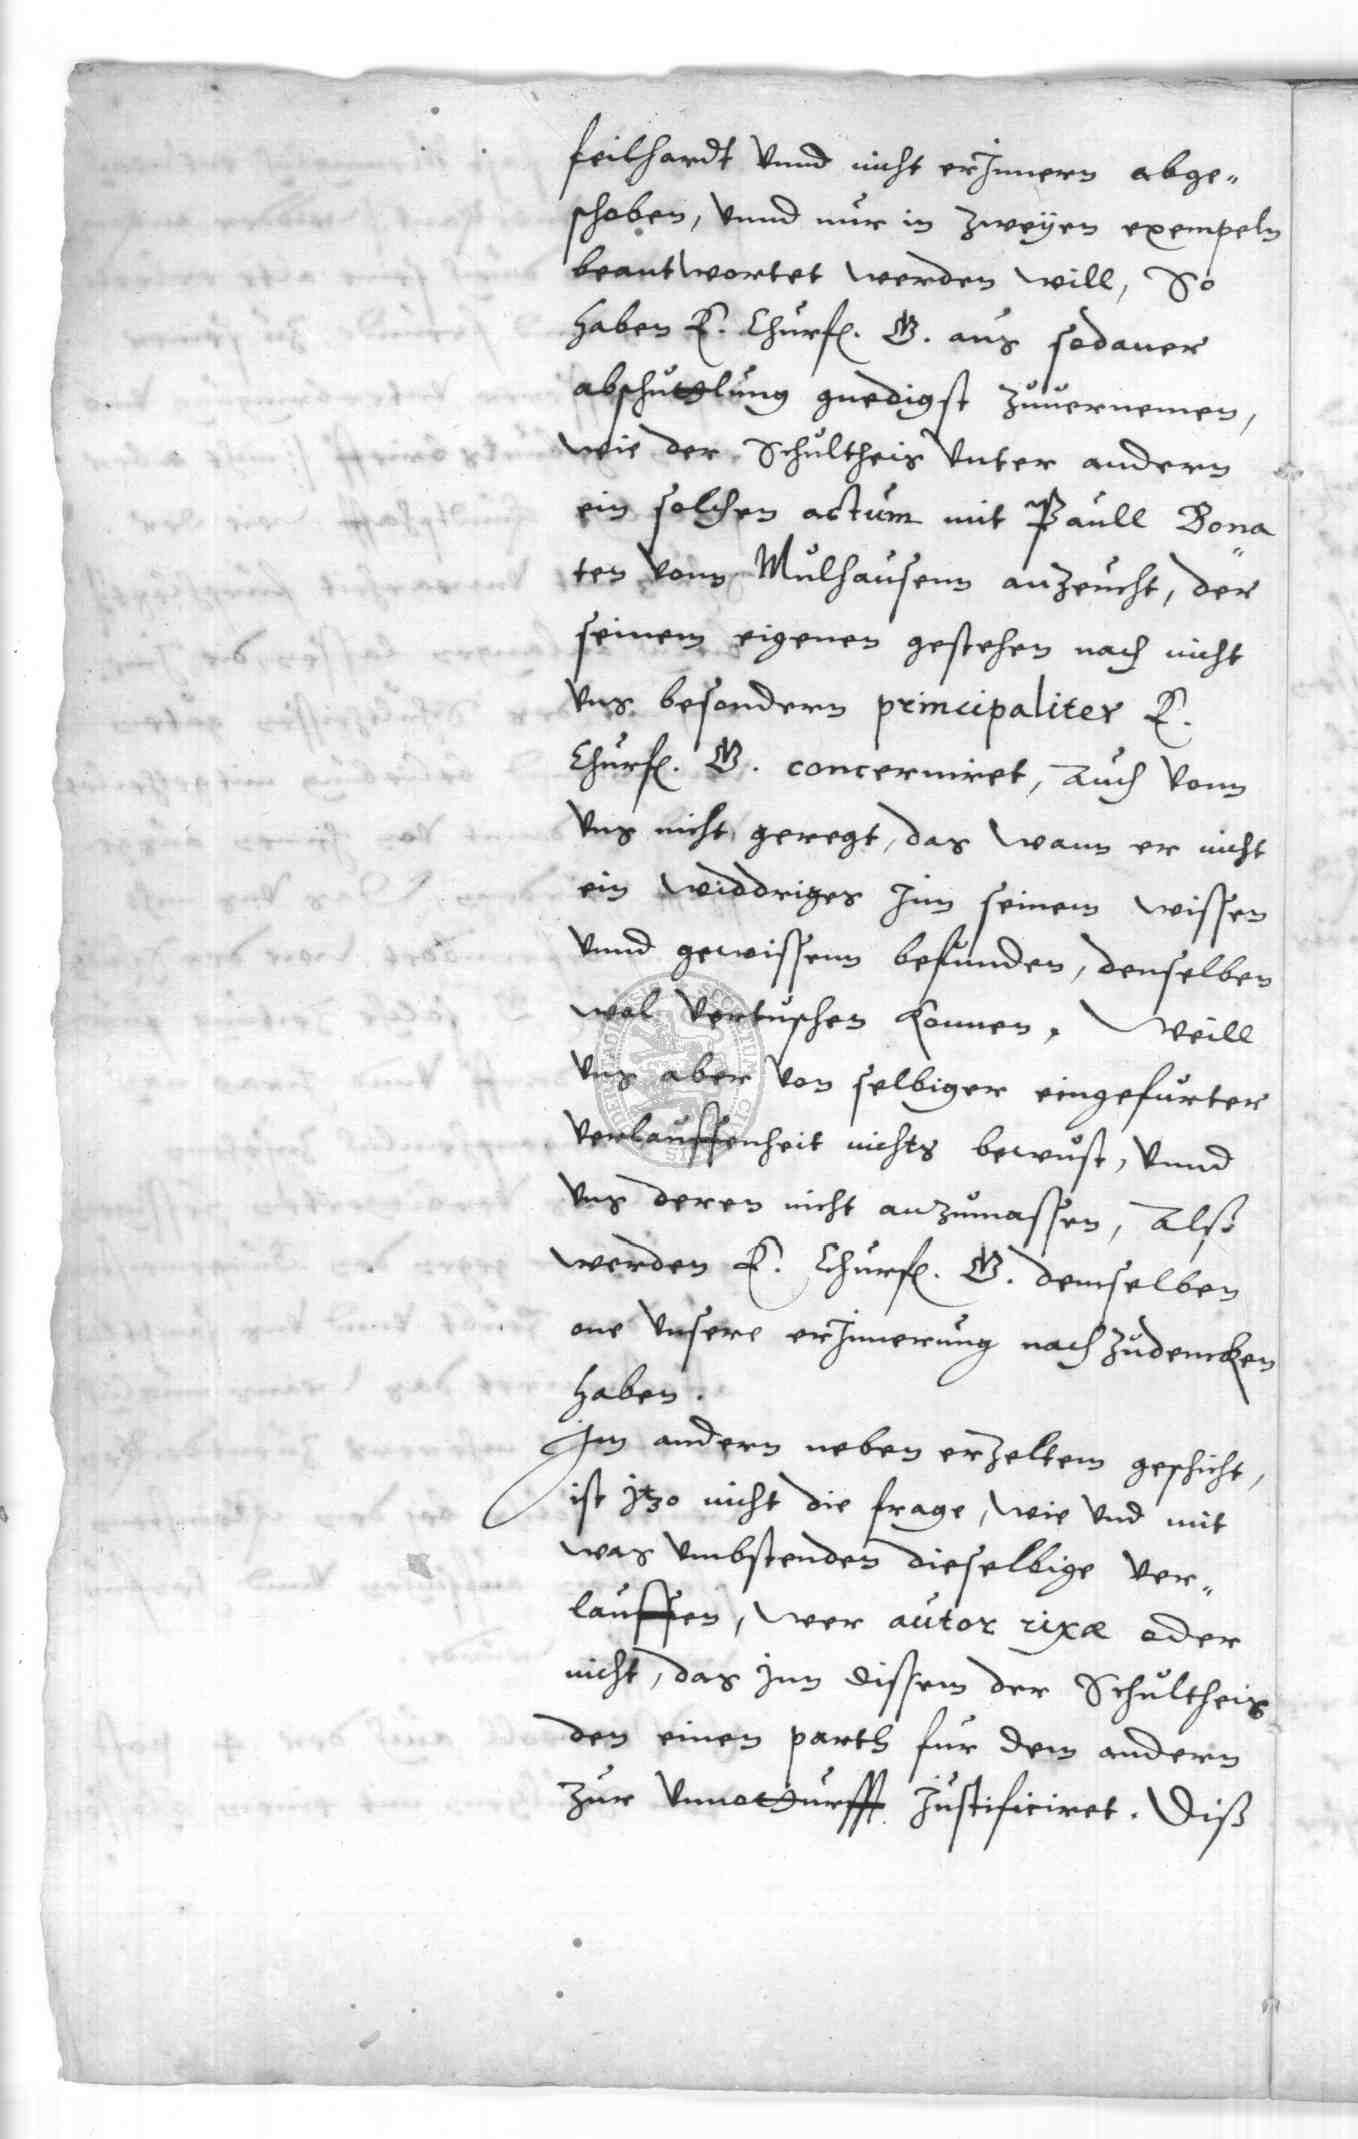 feilhardt vnnd nicht erJnnern abge„
schoben, vnnd nur in zweÿen exempeln
beantwortet werden will, So
haben E. Churf. G. aus sodaner
abschuttlung gnedigst zuuernemen,
wie der Schultheis vnter andern
ein solchen actum mit Paull Bona„
ten vonn Mulhausenn anzeucht, der
seinem eigenen gestehen nach nicht
vns besondern principaliter E.
Churf. G. concerniret, Auch vonn
vns nicht geregt, das wann er nicht
ein widdriges Jnn seinem wissen
vnnd gewissenn befunden, denselben
wol vertuschen konnen. Weill
vns aber von selbiger eingefurter
verlauffenheit nichts bewust, vnnd
vns deren nicht anzumassen, Alß
werden E. Churf. G. demselben
one vnsere erJnnerung nach zudencken
haben.
Jm andern neben erzeltem geschicht,
ist jtzo nicht die frage, wie vnd mit
was vmbstenden dieselbige ver„
lauffen, wer autor rixæ oder
nicht, das Jnn dissem der Schultheis
den einen parth fur dem andern
zur vnnotturfft Justificiret. Diß